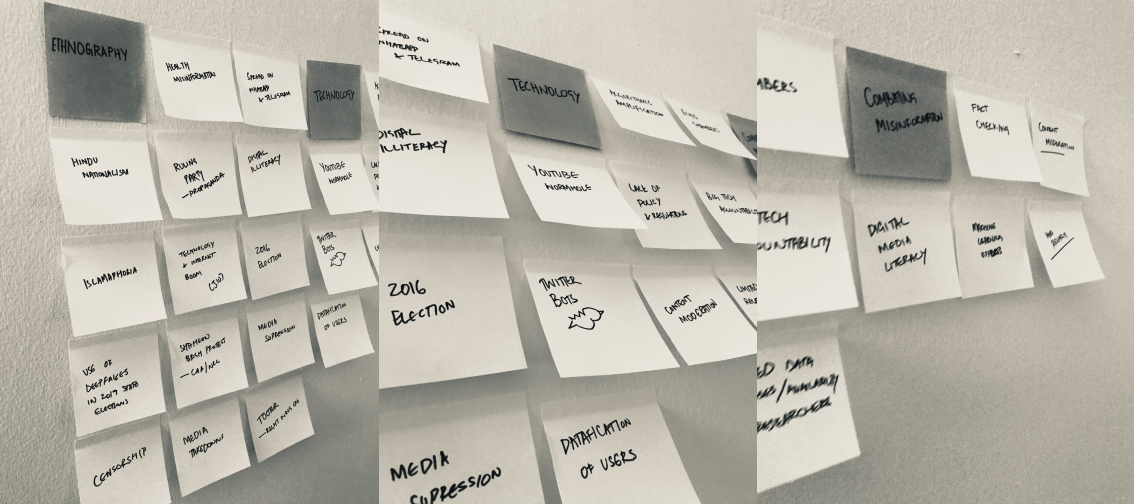 ETHNOGRAPHY
HEALTH
MISINFORMATION
SPREAD ON
WHATSAPP
& TELEGRAM
TECHNOLOGY
HINDU
NATIONALISM
RULING
PARTY
—PROPAGANDA
DIGITAL
ILLITERACY
YOUTUBE
WORMHOLE
ISLAMAPHOBIA
TECHNOLOGY
& INTERNET
BOOM
(JIO)
2016
ELECTION
TWITTER
BOTS
USE OF
DEEPFAKES
IN 2019 STATE
ELECTIONS
SHAHEEN
BAGH PROTEST
—CAA/NRC
MEDIA
SUPRESSION
DATAFICATION
OF USERS
CENSORSHIP
MEDIA
TAKEDOWNS
TOOTER
SPREAD ON
WHATSAPP
& TELEGRAM
TECHNOLOGY
ALGORITHMIC
AMPLIFICATION
DIGITAL
ILLITERACY
YOUTUBE
WORMHOLE
LACK OF
POLICY
& REGULATIONS
BIG TECH
ACCOUNTABILITY
2016
ELECTION
TWITTER
BOTS
CONTENT
MODERATION
MEDIA
SUPRESSION
DATAFICATION
OF USERS
MBERS
COMBATING
MISINFORMATION
FACT
CHECKING
CONTENT
MODERATION
TECH
OUNTABILITY
DIGITAL
MEDIA
LITERACY
MACHINE
LEARNING
EFFORTS
ED DATA
/AVAILABILITY
RESEARCHERS